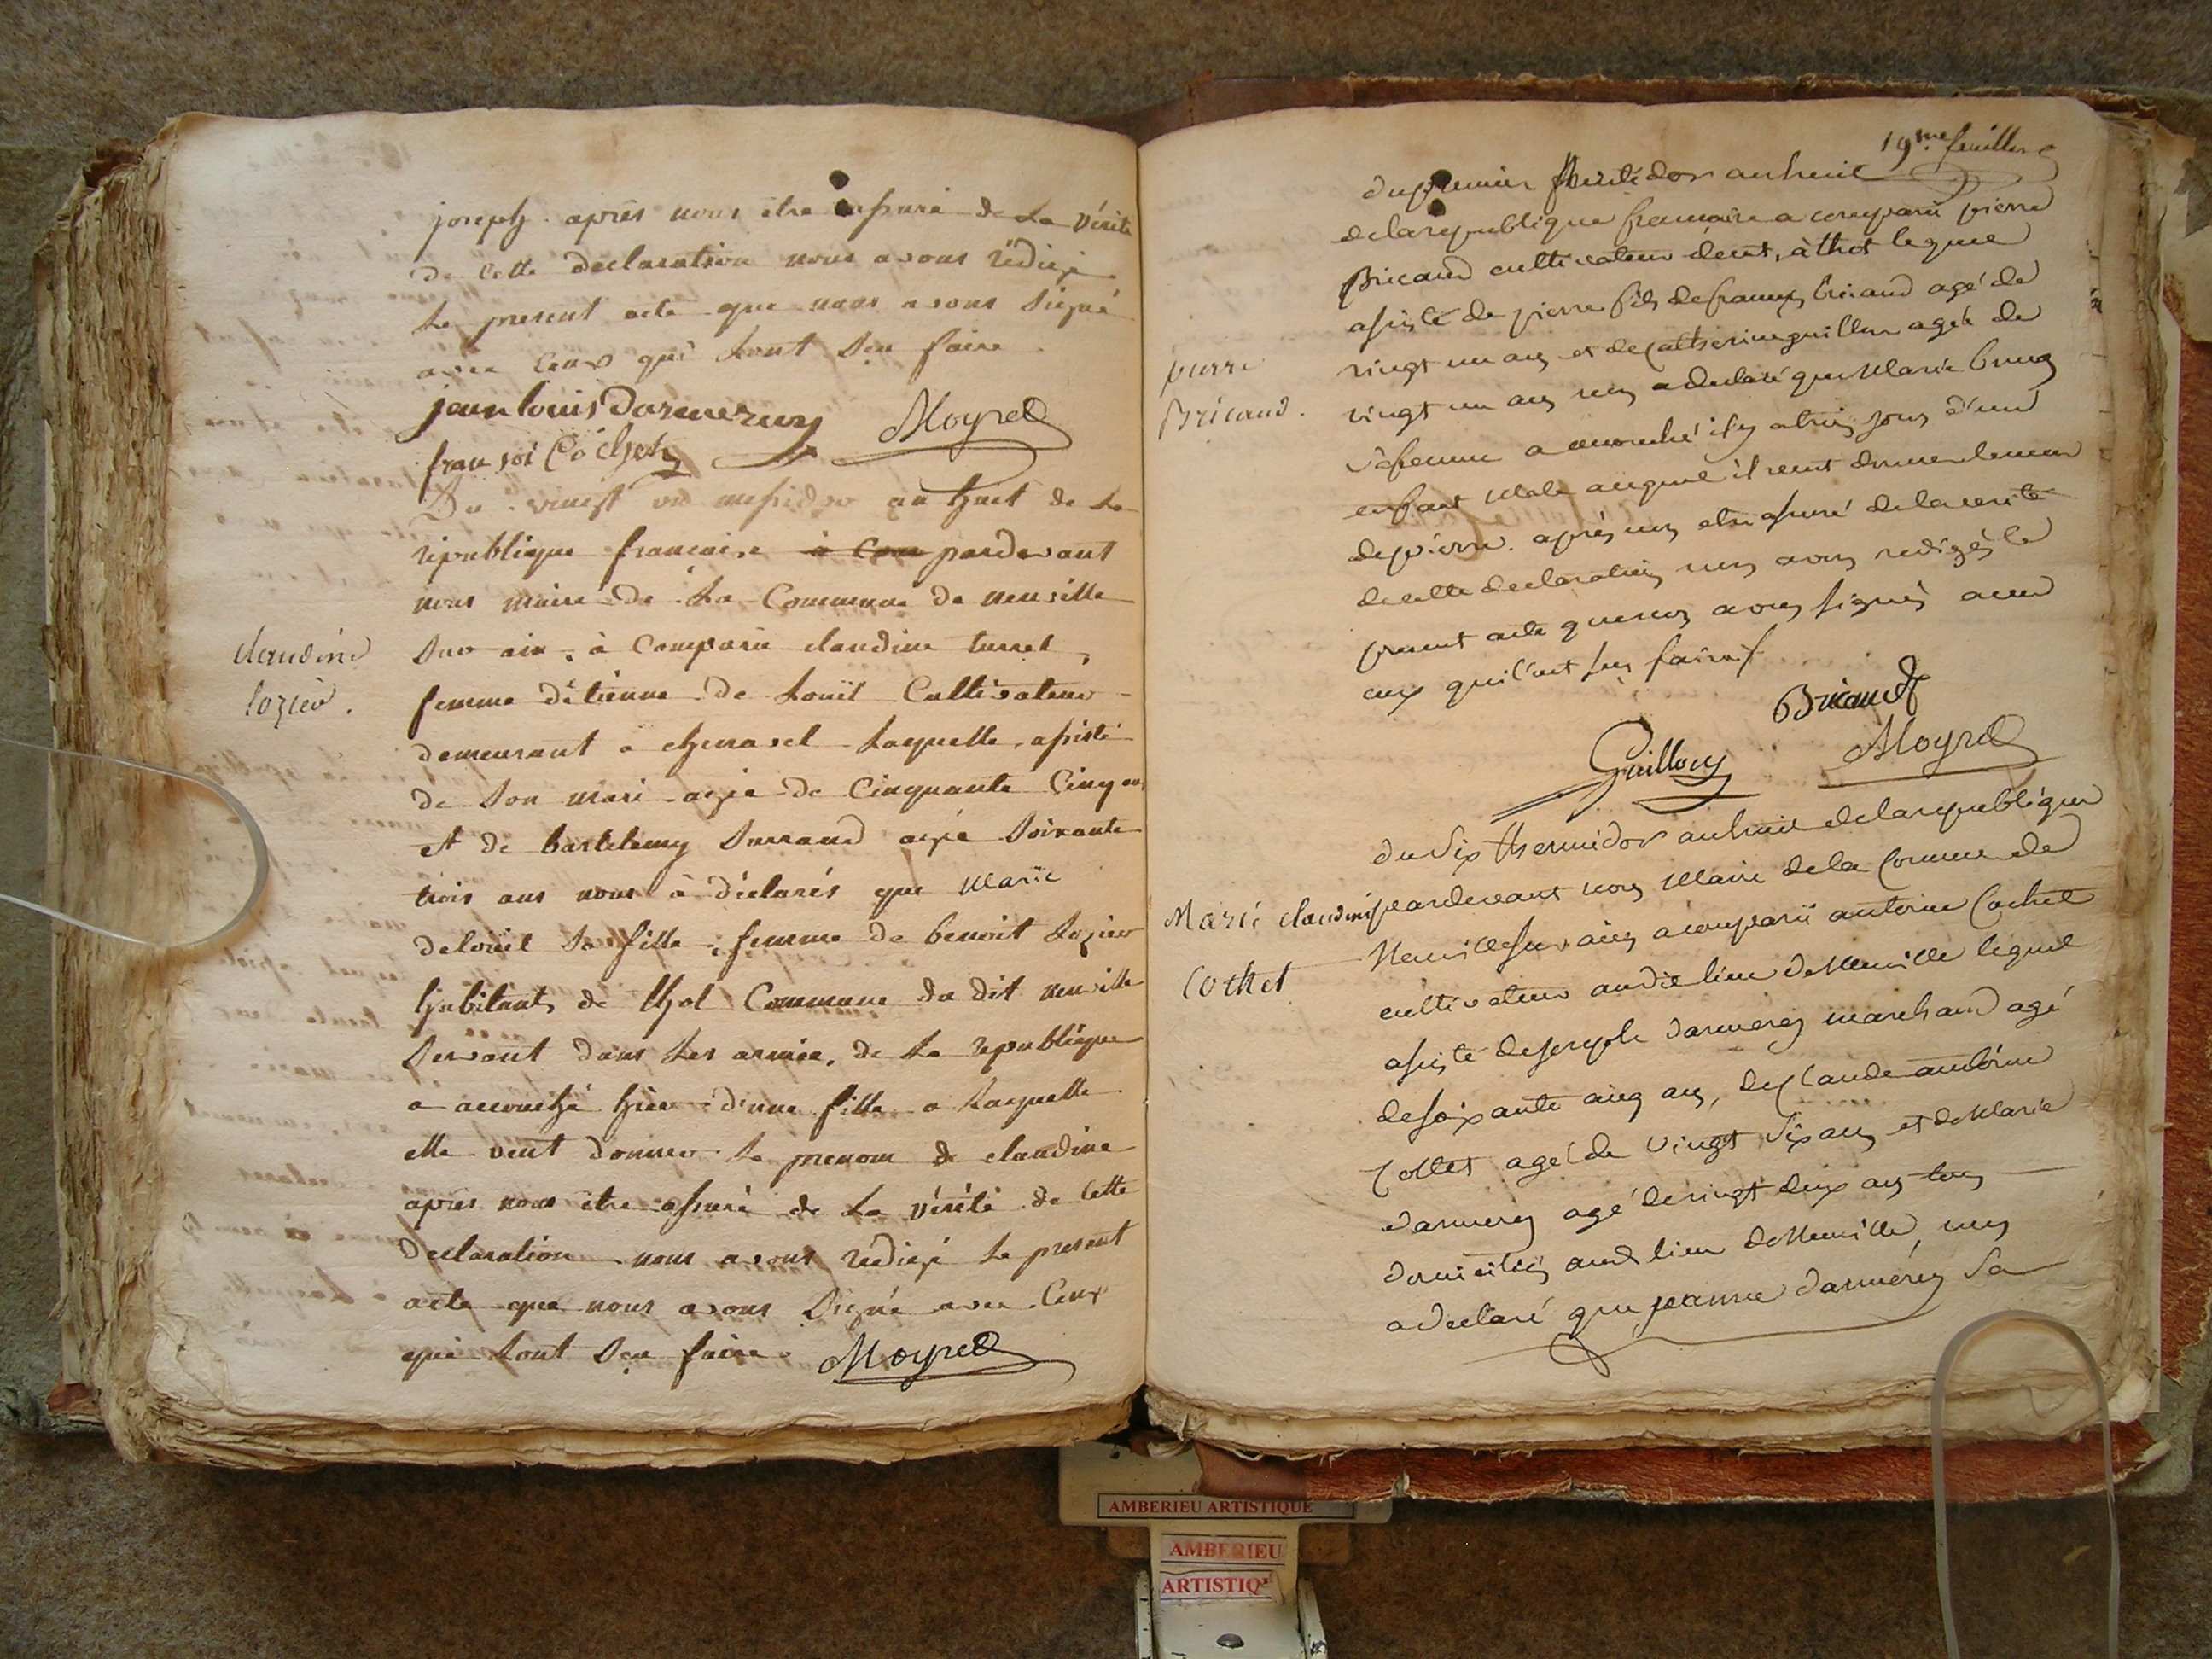 joseph. après nous être assuré de La vérité
de Cette déclaration nous avons rédigé
Le present acte que nous avons signé
avec Ceux qui Sont Seu faire
jean louis darmerey Moyret
fransoi Cochet
Du vinst un messidor an huet de La
république francaise à Com pardevant
nous maire de La Commune de neuville
Sur ain, à Comparu claudine turrel,
claudine
lozier.
femme détienne de Louïl Cultivateur
demeurant a chenavel Laquelle, assisté
de Son mari agé de Cinquante Cinq ans
et de bartelemy Durrand agé Soixante
trois ans nous à déclarés que Marie
delouïl Sa fille, femme de benoit Lozier
habitant de thol Commune du dit neuville
Servant dans Les armée, de La republique
a accouché hier d'une fille a Laquelle
elle veut donner Le prenom de claudine
après nous être assuré de La vérité de Cette
déclaration nous avons rédigé Le present
acte que nous avons Signé avec Ceux
qui Sont Seu faire. Moyret
19me feuillet
du premier thermidor an huit
de la republique francaise a comparu pierre
Bricaud cultivateur à thol lequel
assisté de pierre fils de françois bricaud agé de
vingt un ans et de catherine guillon agée de
pierre
Bricaud.
vingt un ans nous a declaré que Marie
sa femme a accouché il y a trois jours d'un
enfant Male auquel il veut donner le nom
de pierre. après nous etre assuré de la verité
de cette declaration nous avons redigés le
present acte que nous avons signés avec
ceux qui l'ont seu faire
Bricaud
Guillon Moyret
du six thermidor an huit de la republique
Marie claudine
Cothet
pardevant nous Maire de la Commune de
Neuville sur ain a comparu antoine Cochet
cultivateur audit lieu de Neuville lequel
assisté de joseph darmerey marchand agé
de soixante cinq ans, de Claude antoine
Collet agé de vingt six ans et de Marie
darmerey agé de vingt deux ans tous
domiciliés aud lieu de Neuville, nous
a declaré que jeanne darmerey sa
AMBERIEU ARTISTIQUE
AMBERIEU
ARTISTIQ